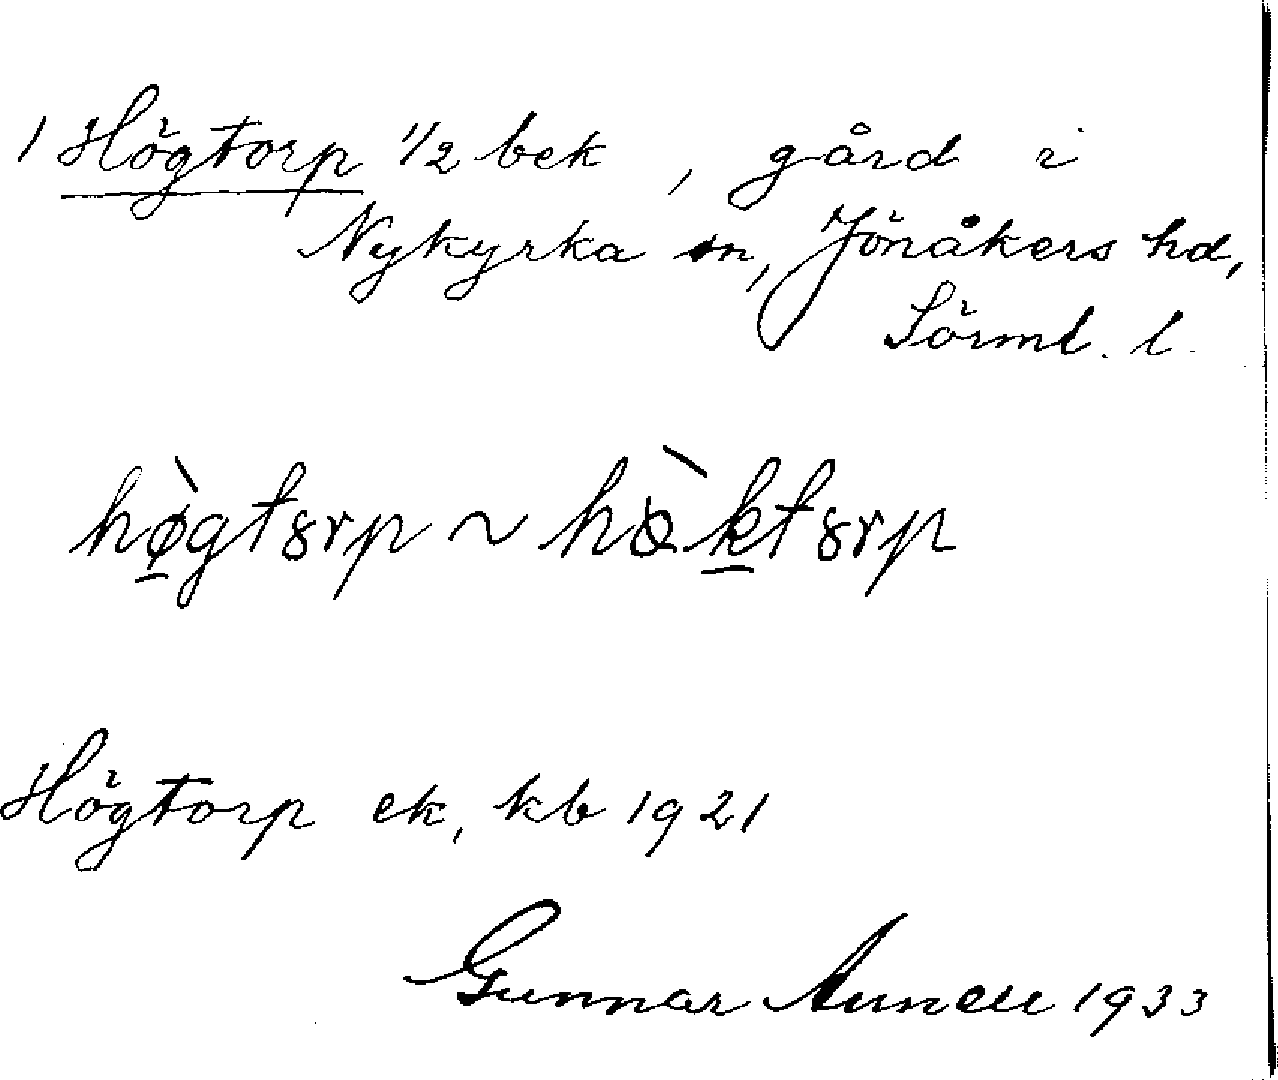 1 Högtorp 1/2 bek, gård i
Nykyrka sn, Jönåkers hd,
Sörml. l.
hø̀gtɤrp ~ hɔ̀ktɤrp
Högtorp ek, kb 1921
Gunnar 1933